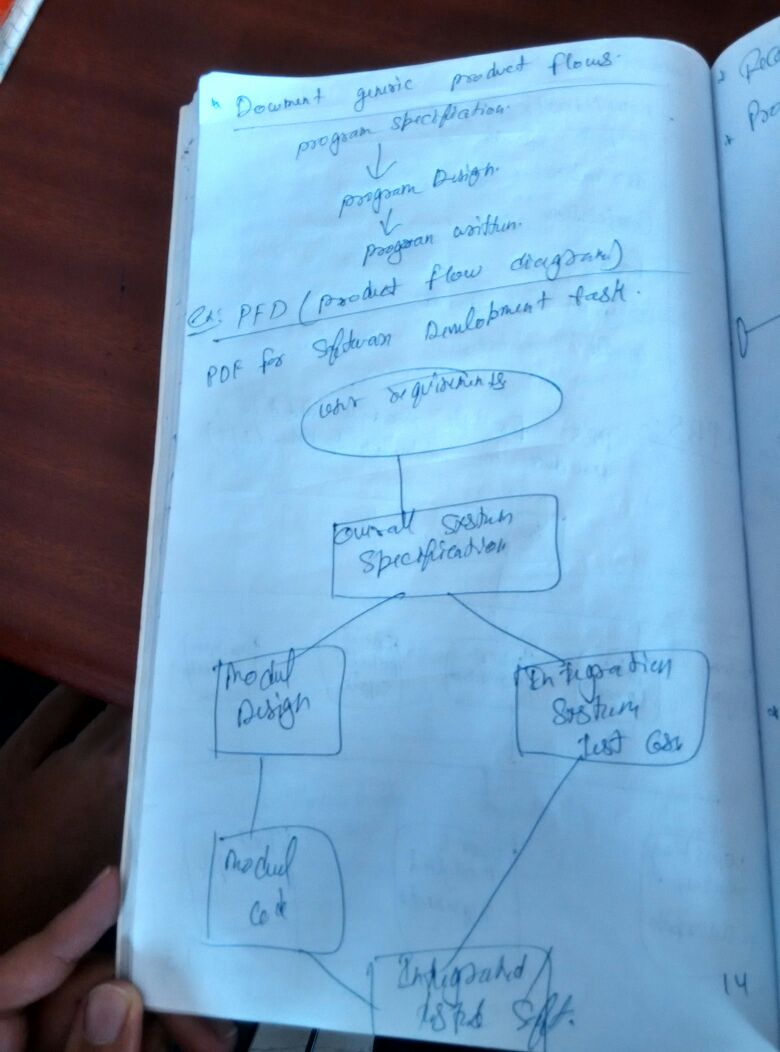 * Document generic product flows.
program specification.
program Design.
program written.
Ex: PFD (product flow diagram)
PDF for Software Development task.
user requirements
Overall System
Specification
Modul
Design
Integration
System
test Case
Modul
Code
Integrated
tested Sft.
14
* Reco
* Pro